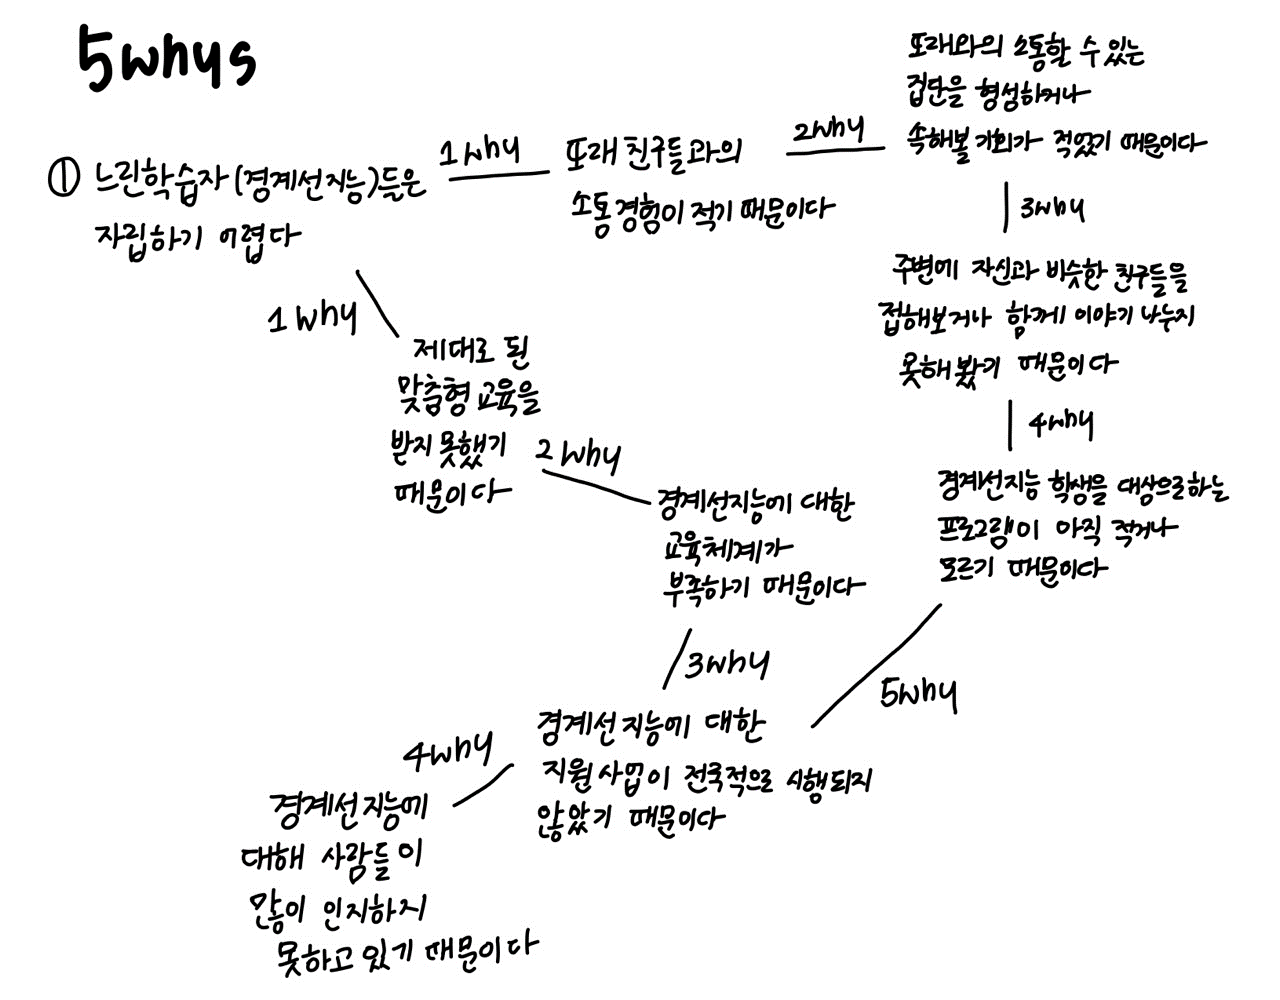 5whys
① 느린학습자(경계선지능)들은
자립하기 어렵다
1why
또래 친구들과의
소통경험이 적기 때문이다
2why
또래와의 소통할 수 있는
집단을 형성하거나
속해볼 기회가 적었기 때문이다
3why
주변에 자신과 비슷한 친구들을
접해보거나 함께 이야기 나누지
못해봤기 때문이다
4why
경계선지능 학생을 대상으로하는
프로그램이 아직 적거나
모르기 때문이다
5why
1why
제대로 된
맞춤형 교육을
받지 못했기
때문이다
2why
경계선지능에 대한
교육체계가
부족하기 때문이다
3why
경계선지능에 대한
지원사업이 전국적으로 시행되지
않았기 때문이다
4why
경계선지능에
대해 사람들이
많이 인지하지
못하고 있기 때문이다